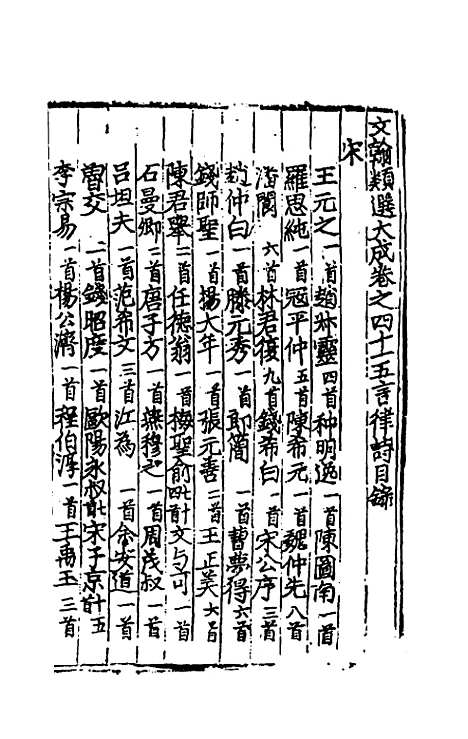 文翰類選大成卷之四十五言律詩目錄
宋
王元之一首趙冰靈四首种明逸一首陳圖南一首
羅思純一首寇平仲五首陳希元一首魏仲先八首
潘閬六首林君復九首錢希白一首宋公序三首
趙仲白一首滕元秀一首郎簡一首曹夢得六首
錢師聖一首楊大年一首張元善二首王正美六首
陳君舉二首任德翁一首梅聖俞四十首文与可一首
石曼卿二首唐子方一首燕穆之一首周茂叔一首
呂坦夫一首范希文三首江為一首余安道一首
曾交二首錢昭度一首歐陽永叔宋子京五
李宗易一首楊公濟一首程伯淳一首王禹玉三首